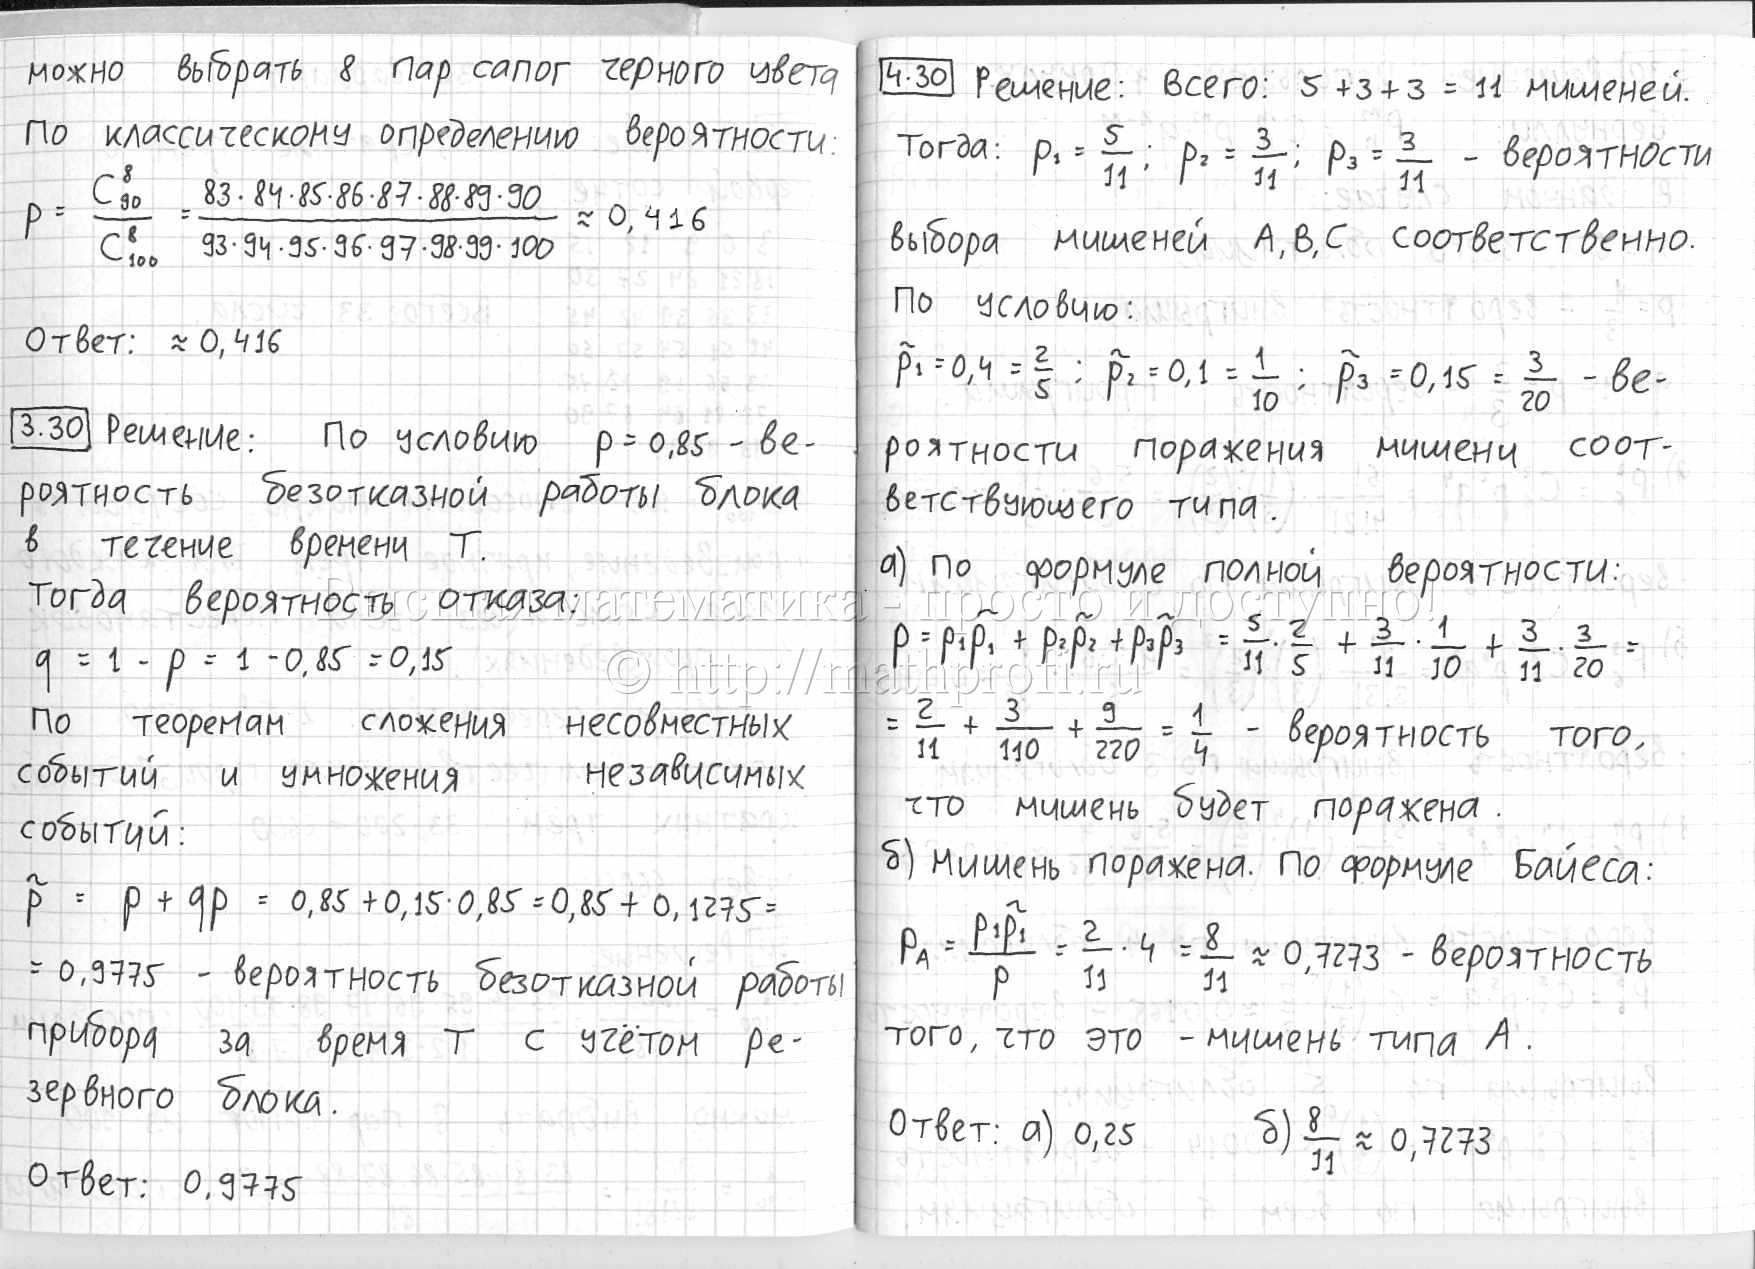 можно выбрать 8 пар сапог черного цвета
По классическому определению вероятности:
p = C⁸₉₀ / C⁸₁₀₀ = 83·84·85·86·87·88·89·90 / 93·94·95·96·97·98·99·100 ≈ 0,416
Ответ: ≈ 0,416
3.30 Решение: По условию p = 0,85 - ве-
роятность безотказной работы блока
в течение времени T.
Тогда вероятность отказа:
q = 1 - p = 1 - 0,85 = 0,15
По теоремам сложения несовместных
событий и умножения независимых
событий:
p̃ = p + qp = 0,85 + 0,15·0,85 = 0,85 + 0,1275 =
= 0,9775 - вероятность безотказной работы
прибора за время T с учётом ре-
зервного блока.
Ответ: 0,9775
4.30 Решение: Всего: 5 + 3 + 3 = 11 мишеней.
Тогда: p₁ = 5/11; p₂ = 3/11; p₃ = 3/11 - вероятности
выбора мишеней A, B, C соответственно.
По условию:
p̃₁ = 0,4 = 2/5; p̃₂ = 0,1 = 1/10; p̃₃ = 0,15 = 3/20 - ве-
роятности поражения мишени соот-
ветствующего типа.
а) По формуле полной вероятности:
p = p₁p̃₁ + p₂p̃₂ + p₃p̃₃ = 5/11 · 2/5 + 3/11 · 1/10 + 3/11 · 3/20 =
= 2/11 + 3/110 + 9/220 = 1/4 - вероятность того,
что мишень будет поражена.
б) Мишень поражена. По формуле Байеса:
P_A = p₁p̃₁ / p = 2/11 · 4 = 8/11 ≈ 0,7273 - вероятность
того, что это - мишень типа A.
Ответ: а) 0,25 б) 8/11 ≈ 0,7273
Высшая математика - просто и доступно!
© http://mathprofi.ru